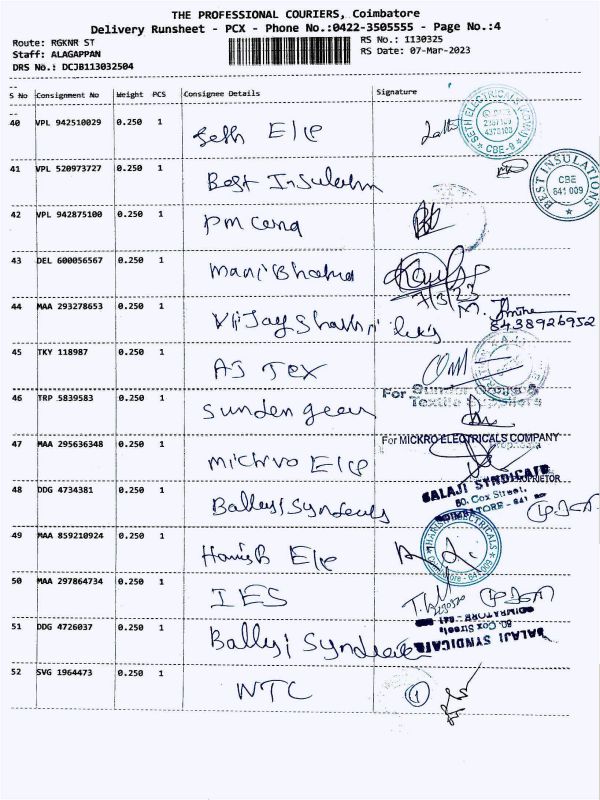 THE PROFESSIONAL COURIERS, Coimbatore
Delivery Runsheet - PCX - Phone No.:0422-3505555 - Page No.:4
Route: RGKNR ST RS No.: 1130325
Staff: ALAGAPPAN RS Date: 07-Mar-2023
DRS No.: DCJB113032504
S No Consignment No Weight PCS Consignee Details Signature
40 VPL 942510029 0.250 1 Seth Ele
SETH ELECTRICALS CBE-9
41 VPL 520973727 0.250 1 Best Insulation
BEST INSULATIONS CBE 641 009
42 VPL 942875100 0.250 1 PM Cena
43 DEL 600056567 0.250 1 Mani Bhahd
7/3/23
44 MAA 293278653 0.250 1 Vijay
8438926952
45 TKY 118987 0.250 1 AJ Tex
46 TRP 5839583 0.250 1 Sunden gears
For Sunder Gears &
47 MAA 295636348 0.250 1 Michro Ele
For MICKRO ELECTRICALS COMPANY
PROPRIETOR
48 DDG 4734381 0.250 1 Ballaji Syndicate
BALAJI SYNDICATE
60. Cox Street,
COIMBATORE - 641
49 MAA 859210924 0.250 1 Harish Ele
50 MAA 297864734 0.250 1 IES
51 DDG 4726037 0.250 1 Ballyji Syndicate
BALAJI SYNDICATE
60. Cox Street,
COIMBATORE - 641
52 SVG 1964473 0.250 1 WTC
1